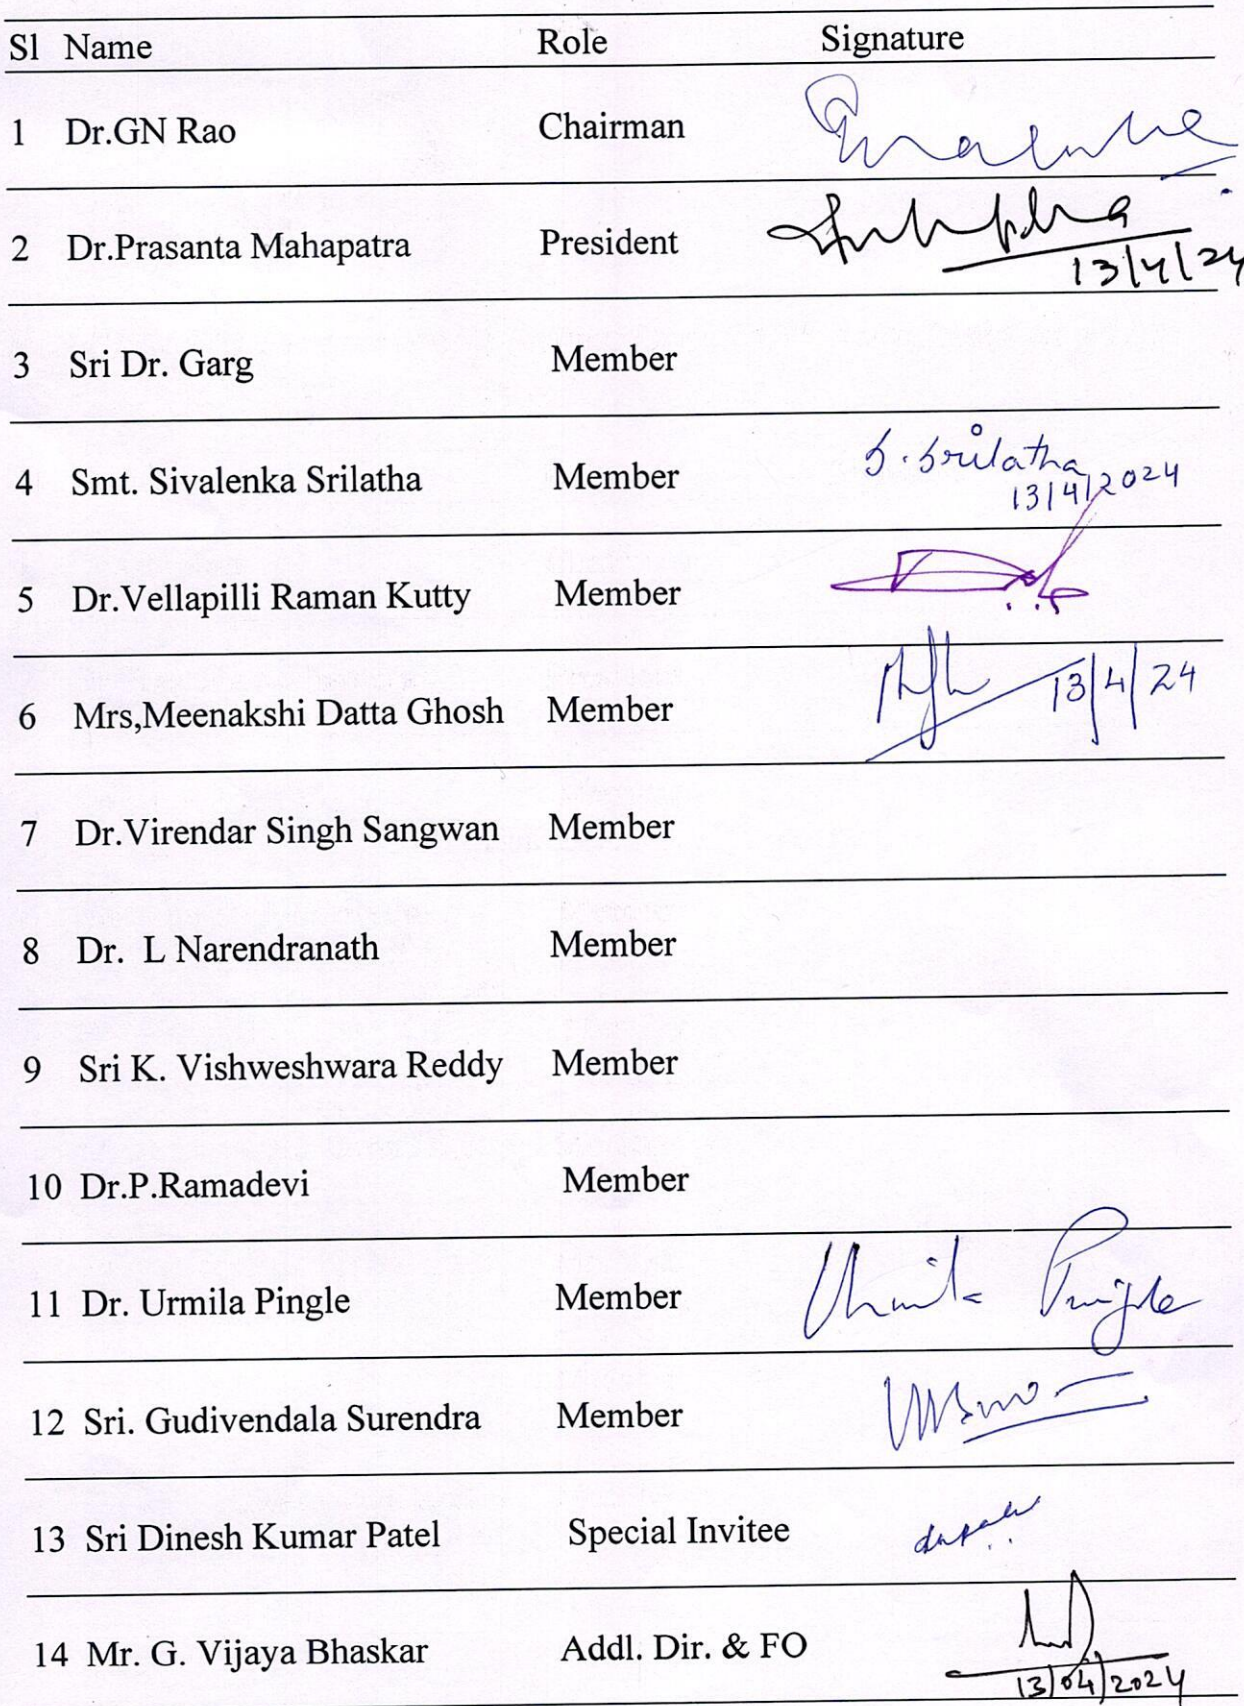 Sl Name Role Signature
1 Dr.GN Rao Chairman
2 Dr.Prasanta Mahapatra President
13/4/24
3 Sri Dr. Garg Member
4 Smt. Sivalenka Srilatha Member S. Srilatha
13/4/2024
5 Dr.Vellapilli Raman Kutty Member
6 Mrs,Meenakshi Datta Ghosh Member 13/4/24
7 Dr.Virendar Singh Sangwan Member
8 Dr. L Narendranath Member
9 Sri K. Vishweshwara Reddy Member
10 Dr.P.Ramadevi Member
11 Dr. Urmila Pingle Member Urmila Pingle
12 Sri. Gudivendala Surendra Member
13 Sri Dinesh Kumar Patel Special Invitee
14 Mr. G. Vijaya Bhaskar Addl. Dir. & FO
13/04/2024